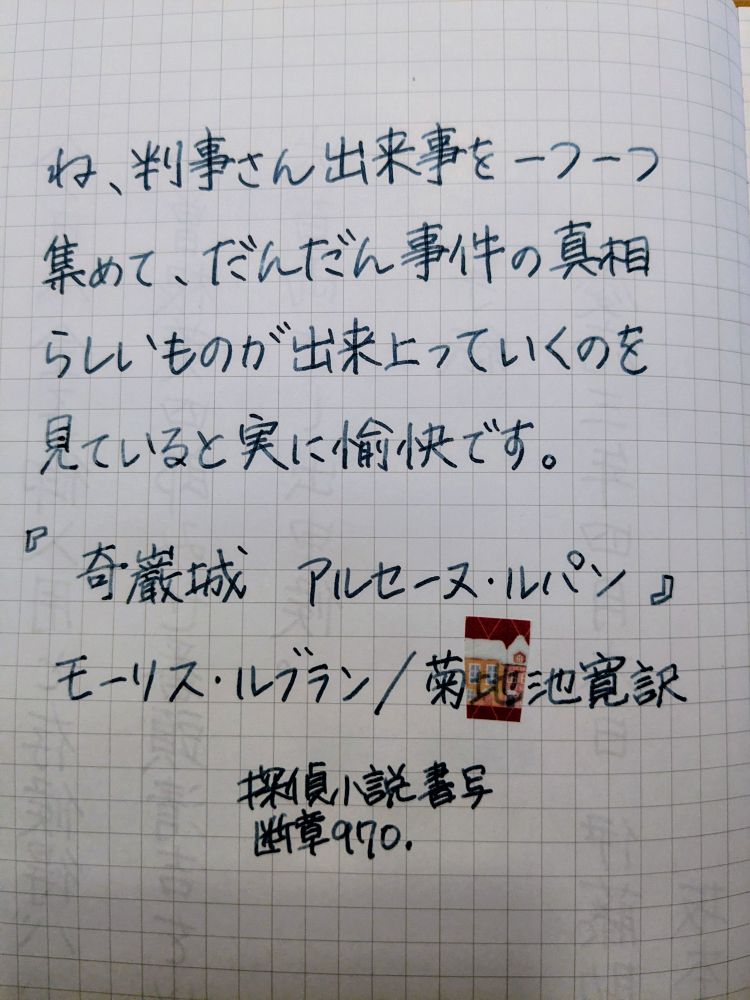 ね、判事さん出来事を一つ一つ
集めて、だんだん事件の真相
らしいものが出来上っていくのを
見ていると実に愉快です。
『奇巌城 アルセーヌ・ルパン』
モーリス・ルブラン/菊池寛訳
探偵小説書写
断章970.